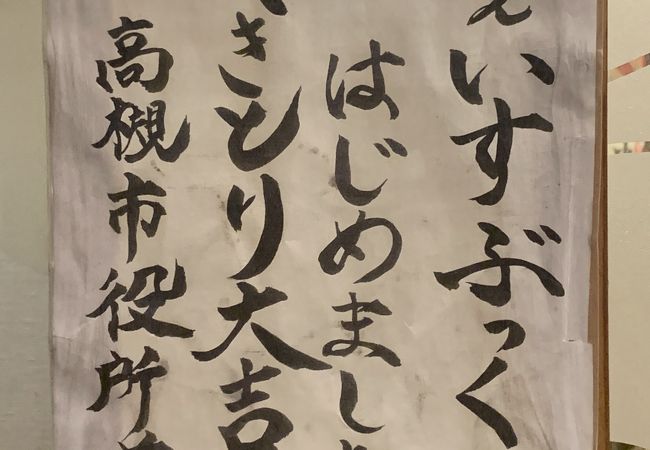 ぇいすぶっく
はじめまし
きとり大吉
高槻市役所